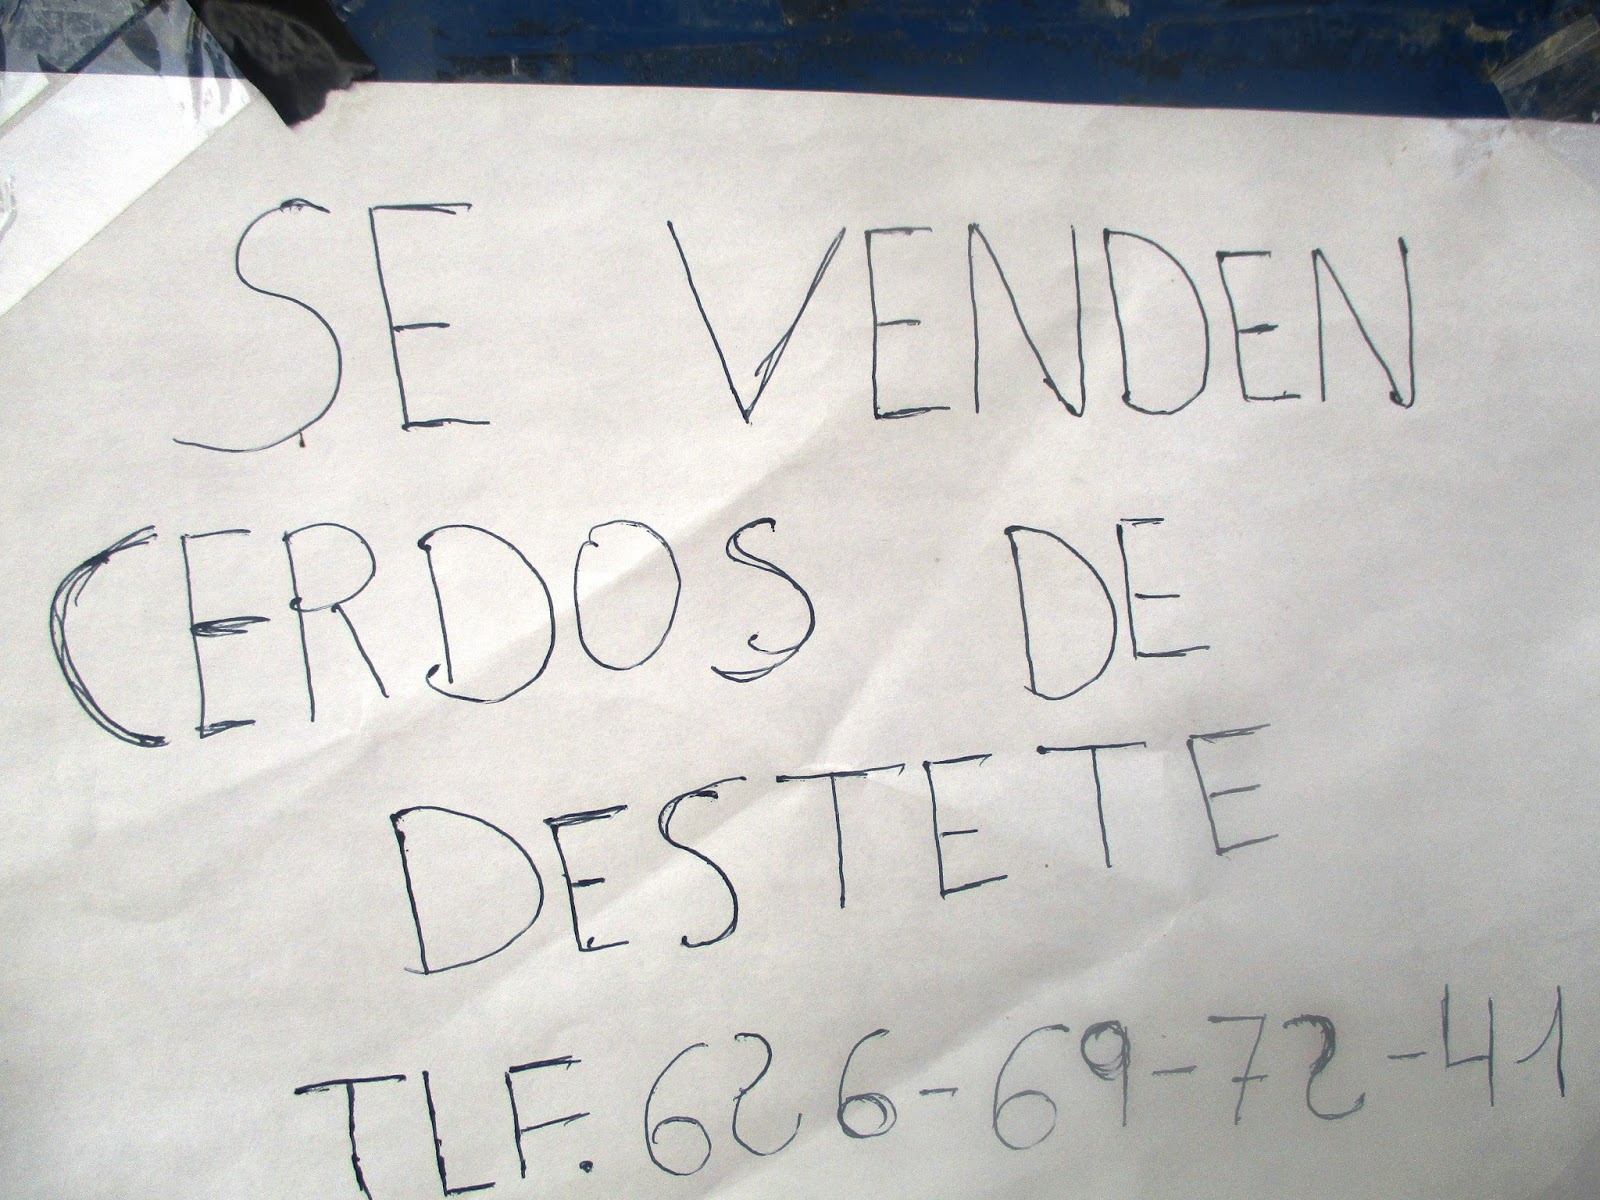 SE VENDEN
CERDOS DE
DESTETE
TLF. 626-69-72-41